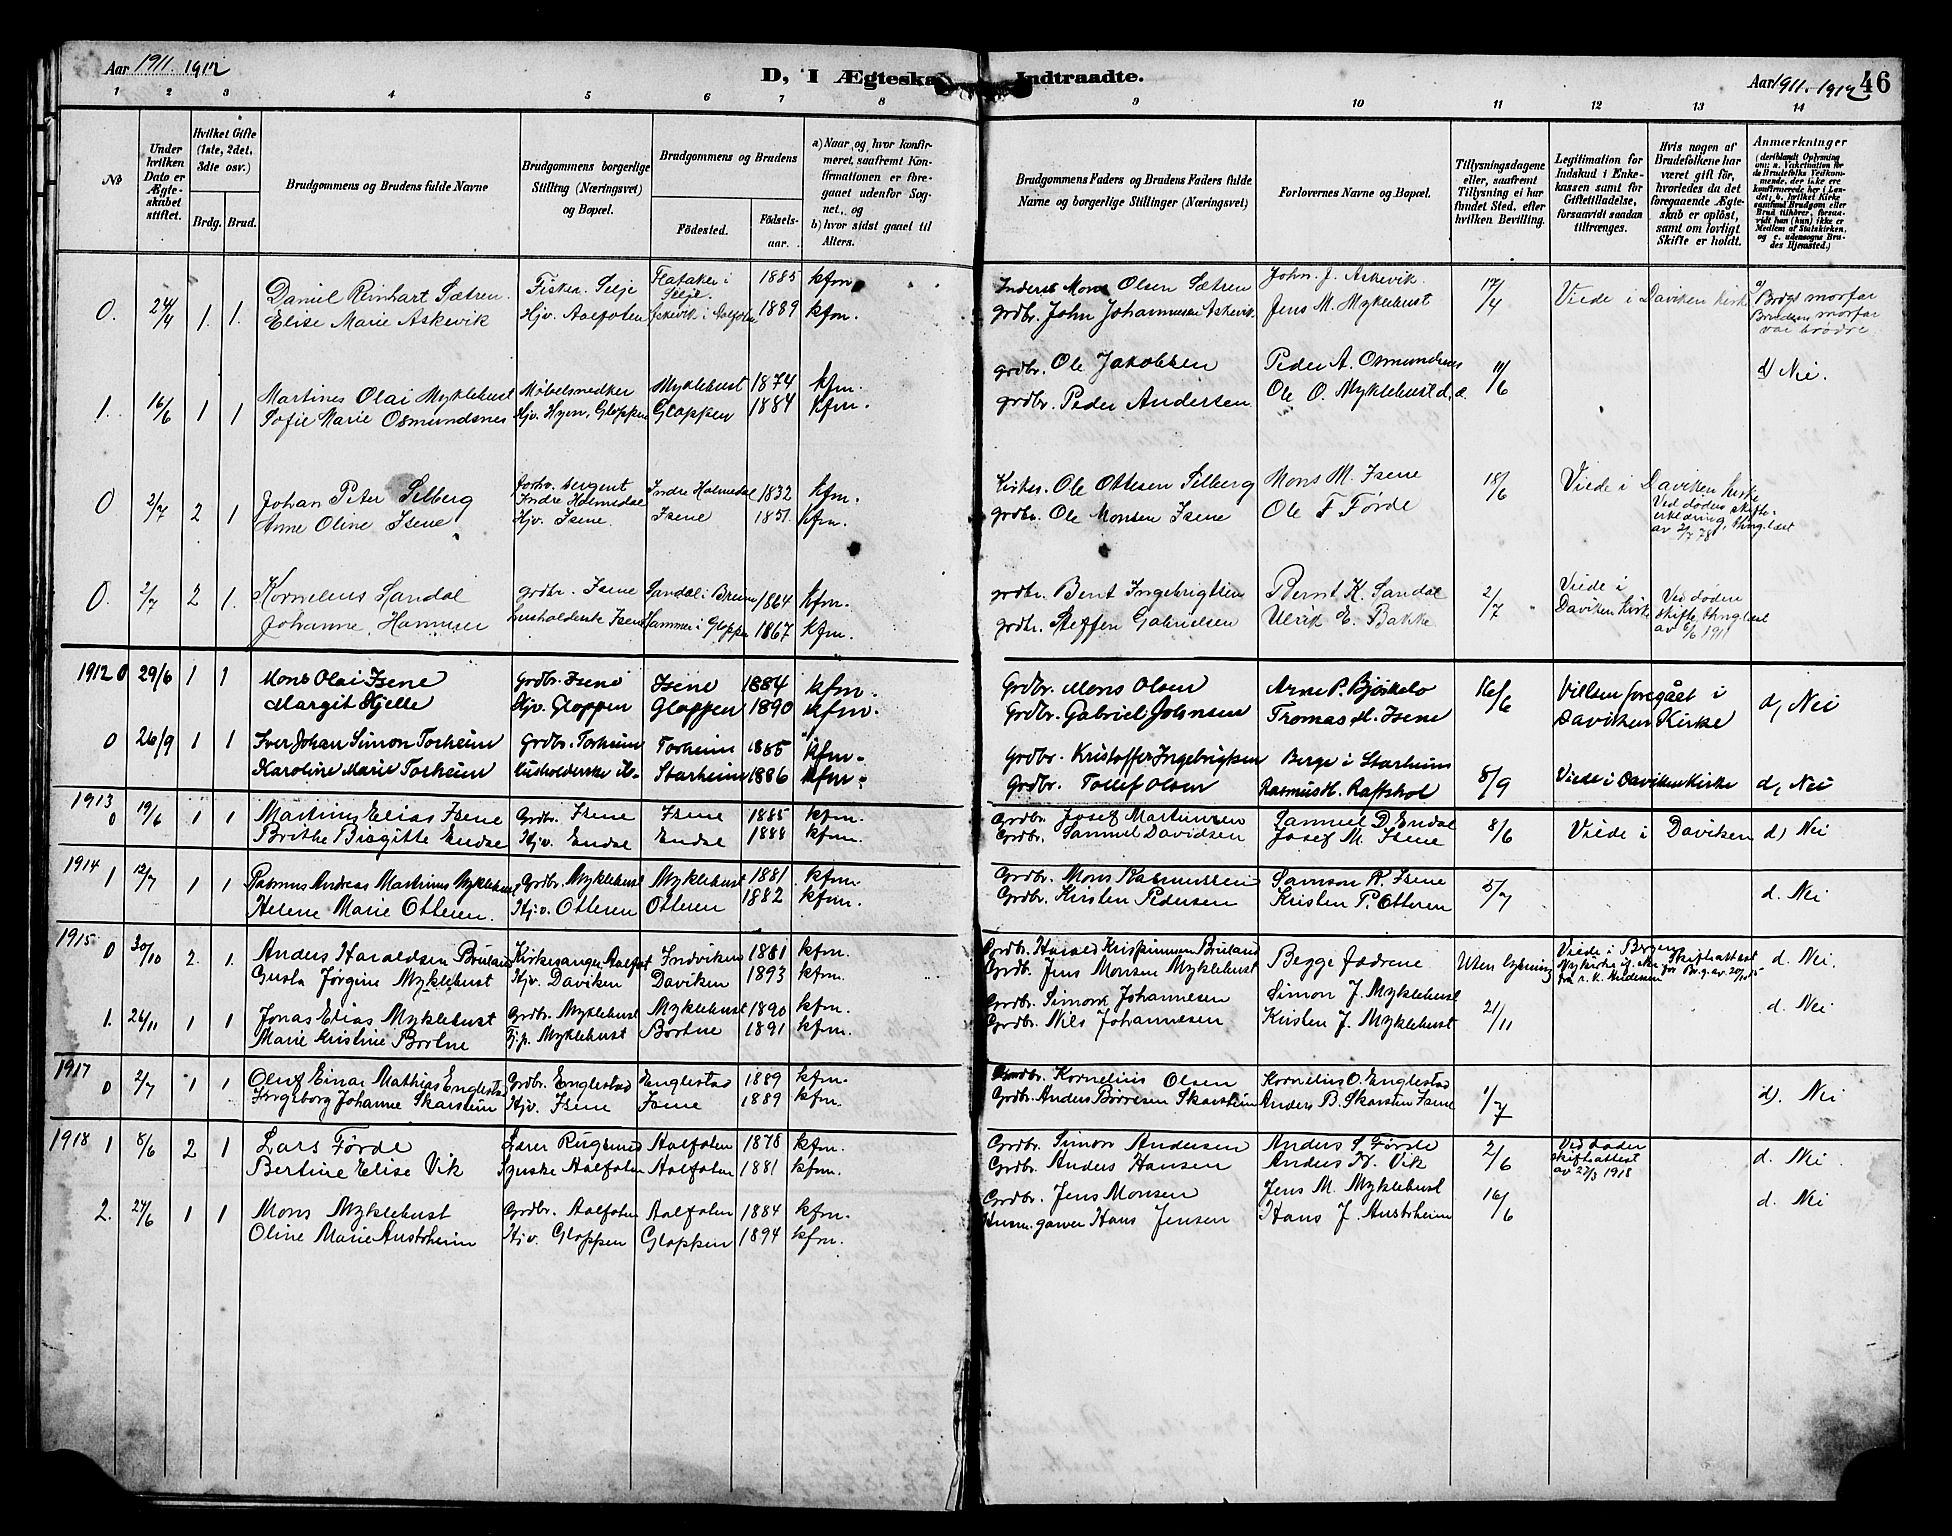 Aar 1911. 1912
D, I Ægteska
Indtraadte.
Aar 1911. 1912
46
1 2 3 4 5 6 7 8 9 10 11 12 13 14
No
Under hvilken Dato er Ægteskabet stiftet.
Hvilket Gifte (1ste, 2det, 3die osv.)
Brdg. Brud.
Brudgommens og Brudens fulde Navne
Brudgommens borgerlige Stilling (Næringsvei) og Bopæl.
Brudgommens og Brudens
Födested. Födselsaar.
a) Naar og hvor konfirmeret, saafremt Konfirmationen er foregaaet udenfor Sognet, og
b) hvor sidst gaaet til Alters.
Brudgommens Faders og Brudens Faders fulde Navne og borgerlige Stillinger (Næringsvei)
Forlovernes Navne og Bopæl.
Tillysningsdagene eller, saafremt Tillysning ei har fundet Sted, efter hvilken Bevilling.
Legitimation for Indskud i Enkekassen samt for Giftetilladelse, forsaavidt saadan tiltrænges.
Hvis nogen af Brudefolkene har været gift för, hvorledes da det foregaaende Ægteskab er oplöst, samt om lovligt Skifte er holdt.
Anmærkninger
(deriblandt Oplysning om: a. Vaksination for de Brudefolks Vedkommende, der ikke ere konfirmerede her i Landet, b. hvilket Kirkesamfund Brudgom eller Brud tilhörer, forsaavidt han (hun) ikke er Medlem af Statskirken, og c. udensogns Brudes Hjemsted.)
0. 24/4 1. 1. Daniel Reinhart Sætren. Fisker. Selje Flataker i Selje. 1885 kfm Mons Olsen Sætren John. J. Askevik 17/4 Viede i Daviken Kirke Brdgs morfar
Elise Marie Askevik Hjv. Aalfoten Askevik i Aalfoten 1889 kfm. grdbr. John Johannesen Askevik. Jens M. Myklehust Brudens morfar var brödre.
1. 16/6 1 1 Martines Olai Myklehust Möbelsnedker Myklehust 1874 kfm. grdbr. Ole Jakobsen Peder A. Osmundsnes 11/6 d) Nei.
Sofie Marie Osmundsnes Hjv. Hyen, Gloppen Gloppen 1884 kfm. grdbr. Peder Andersen Ole O. Myklehust d. æ.
0 2/7 2 1 Johan Peter Selberg forhv. sergent Indre Holmedal Indre Holmedal 1832 kfm. Kirkes. Ole Ottesen Selberg Mons M. Isene 18/6 Viede i Daviken Kirke Ved döden skifteerklæring, thinglæst av 2/7 78
Anne Oline Isene Hjv. Isene. Isene 1851. kfm. grdbr. Ole Monsen Isene Ole F Förde
0. 2/7 2 1. Kornelius Sandal grdbr. Isene Sandal i Breim 1864 kfm. grdbr. Bent Ingebrigtsen Bernt K. Sandal 2/7 Viede i Daviken Kirke Ved döden skifte thinglæst av 6/6 1911
Johanne Hammer husholderske Isene Hammer i Gloppen 1867 kfm. grdbr. Steffen Gabrielsen Ulrik E. Bakke
1912 0 29/6 1 1 Mons Olai Isene Grdbr. Isene Isene 1884 kfm. Grdbr. Mons Olsen Arne P. Bjørkelo 16/6 Vielsen foregået i d, Nei
Margit Hjelle Hjv. Gloppen Gloppen 1890 kfm. Grdbr. Gabriel Johnsen Tromas M. Isene Daviken Kirke
0 26/9 1 1 Iver Johan Simon Torheim Grdbr. Torheim Torheim 1885 kfm. Grdbr. Kristoffer Ingebrigtsen Berge i Starheim 8/9 Viede i Daviken Kirke d, Nei
Karoline Marie Torheim Husholderske Starheim 1886 kfm. Grdbr. Tollef Olsen Rasmus H. Raftshol
1913 0 19/6 1 1 Martinus Elias Isene Grdbr. Isene Isene 1885 kfm. Grdbr. Josef Martinsen Samuel D. Endal 8/6 Viede i Daviken d) Nei
Brithe Birgitte Endal Hjv. Endal Endal 1888 kfm. Grdbr. Samuel Davidsen Josef M. Isene
1914 1 12/7 1 1 Rasmus Andreas Martinus Myklehust Grdbr. Myklehust Myklehust 1881. kfm. Grdbr. Mons Rasmussen Samson R. Isene 5/7 d. Nei
Helene Marie Otteren. Hjv. Otteren Otteren 1882 kfm. Grdbr. Kirsten Pedersen Kristen P. Otteren
1915 0 30/10 2. 1. Anders Haraldsen Bruland Kirkesanger Aalfot Indviken 1881 kfm. Grdbr. Harald Krispinusen Bruland Begge Fædrene Uten lysning Viede i Bergen Skifteattest d. Nei.
Gusta Jørgine Myklebust Hjv. Daviken Daviken 1893 kfm. Grdb. Jens Monsen Myklehust
1. 26/11 1 1 Jonas Elias Myklehust Grdbr. Myklehust Myklehust 1890 kfm. Grdbr. Simon Johannesen Simon J. Myklehust 21/11 d. Nei
Marie Kristine Bortne Tj.p. Myklehust Bortne 1891 kfm. Grdbr. Nils Johannesen Kirsten J. Myklehust
1917 0 2/7 1 1 Oluf Einar Mathias Englestad Grdbr. Englestad Englestad 1889 kfm. Grdbr. Kornelius Olsen Kornelius O. Englestad 1/7 d). Nei
Ingeborg Johanne Skarstein Hjv. Isene Isene 1889 kfm. Grdbr. Anders Börresen Skarstein Anders B. Skarsten Isene
1918 1 8/6 2 1 Lars Førde Lærer Rugsund Aalfoten 1878 kfm. Grdbr. Simon Andersen Anders S. Förde 2/6 Ved döden skifteattest av 27/3 1918 d. Nei
Bertine Elise Vik Syerske Aalfoten Aalfoten 1881 kfm. Grdbr. Anders Hansen Anders H. Vik
2. 27/6 1 1 Mons Myklehust Grdbr. Aalfoten Aalfoten 1884 kfm. Grdbr. Jens Monsen Jens M. Myklehust 16/6 d. Nei
Oline Marie Austrheim Hjv. Gloppen Gloppen 1894 kfm. Hans Jensen Hans J. Austrheim